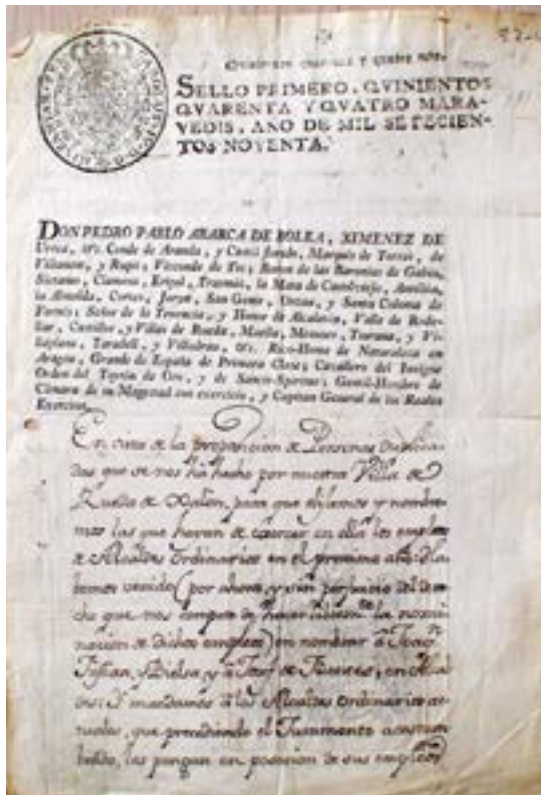 SELLO PRIMERO, QVINIENTOS
QVARENTA Y QVATRO MARA-
VEDIS, AÑO DE MIL SETECIEN-
TOS NOVENTA.
DON PEDRO PABLO ABARCA DE BOLEA, XIMENEZ DE
Urrea, &c. Conde de Aranda, y Castel florido, Marqués de Torres, de
Villanant, y Rupit; Vizconde de Rueda, y Yoch; Baron de las Baronias de Gavin,
Sietamo, Clamosa, Eripol, Trazmoz, la Mata de Castilviejo, Antillon,
la Almolda, Cortes, Jorva, San Genis, Orcau, y Santa Coloma de
Farnés; Señor de la Tenencia, y Honor de Alcalatén, Valle de Rode-
llar, Castillos, y Villas de Rueda, Maella, Mesones, Tiurana, y Vi-
llaplana, Taradell, y Viladrau, &c. Rico-Hombre de Naturaleza en
Aragon, Grande de España de Primera Clase; Cavallero del Insigne
Orden del Toyson de Oro, y de Sancti-Spiritus; Gentil-Hombre de
Cámara de su Magestad con exercicio, y Capitan General de los Reales
Exercitos.
En vista de la proposicion de Personas duplica-
das que se nos ha hecho por nuestra Villa de
Rueda de Xalón, para que elijamos y nombre-
mos las que havran de exercer en ella los empleos
de Alcaldes Ordinarios en el proximo año: Ha-
bemos venido (por ahora, y sin perjuicio del dere-
cho que nos compete de hacer la nomi-
nacion de dichos empleos) en nombrar à
y à de en Alcal-
des: Y mandamos à los Alcaldes Ordinarios ac-
tuales, que precediendo el Juramento acostum-
brado, les pongan en posesion de sus empleos